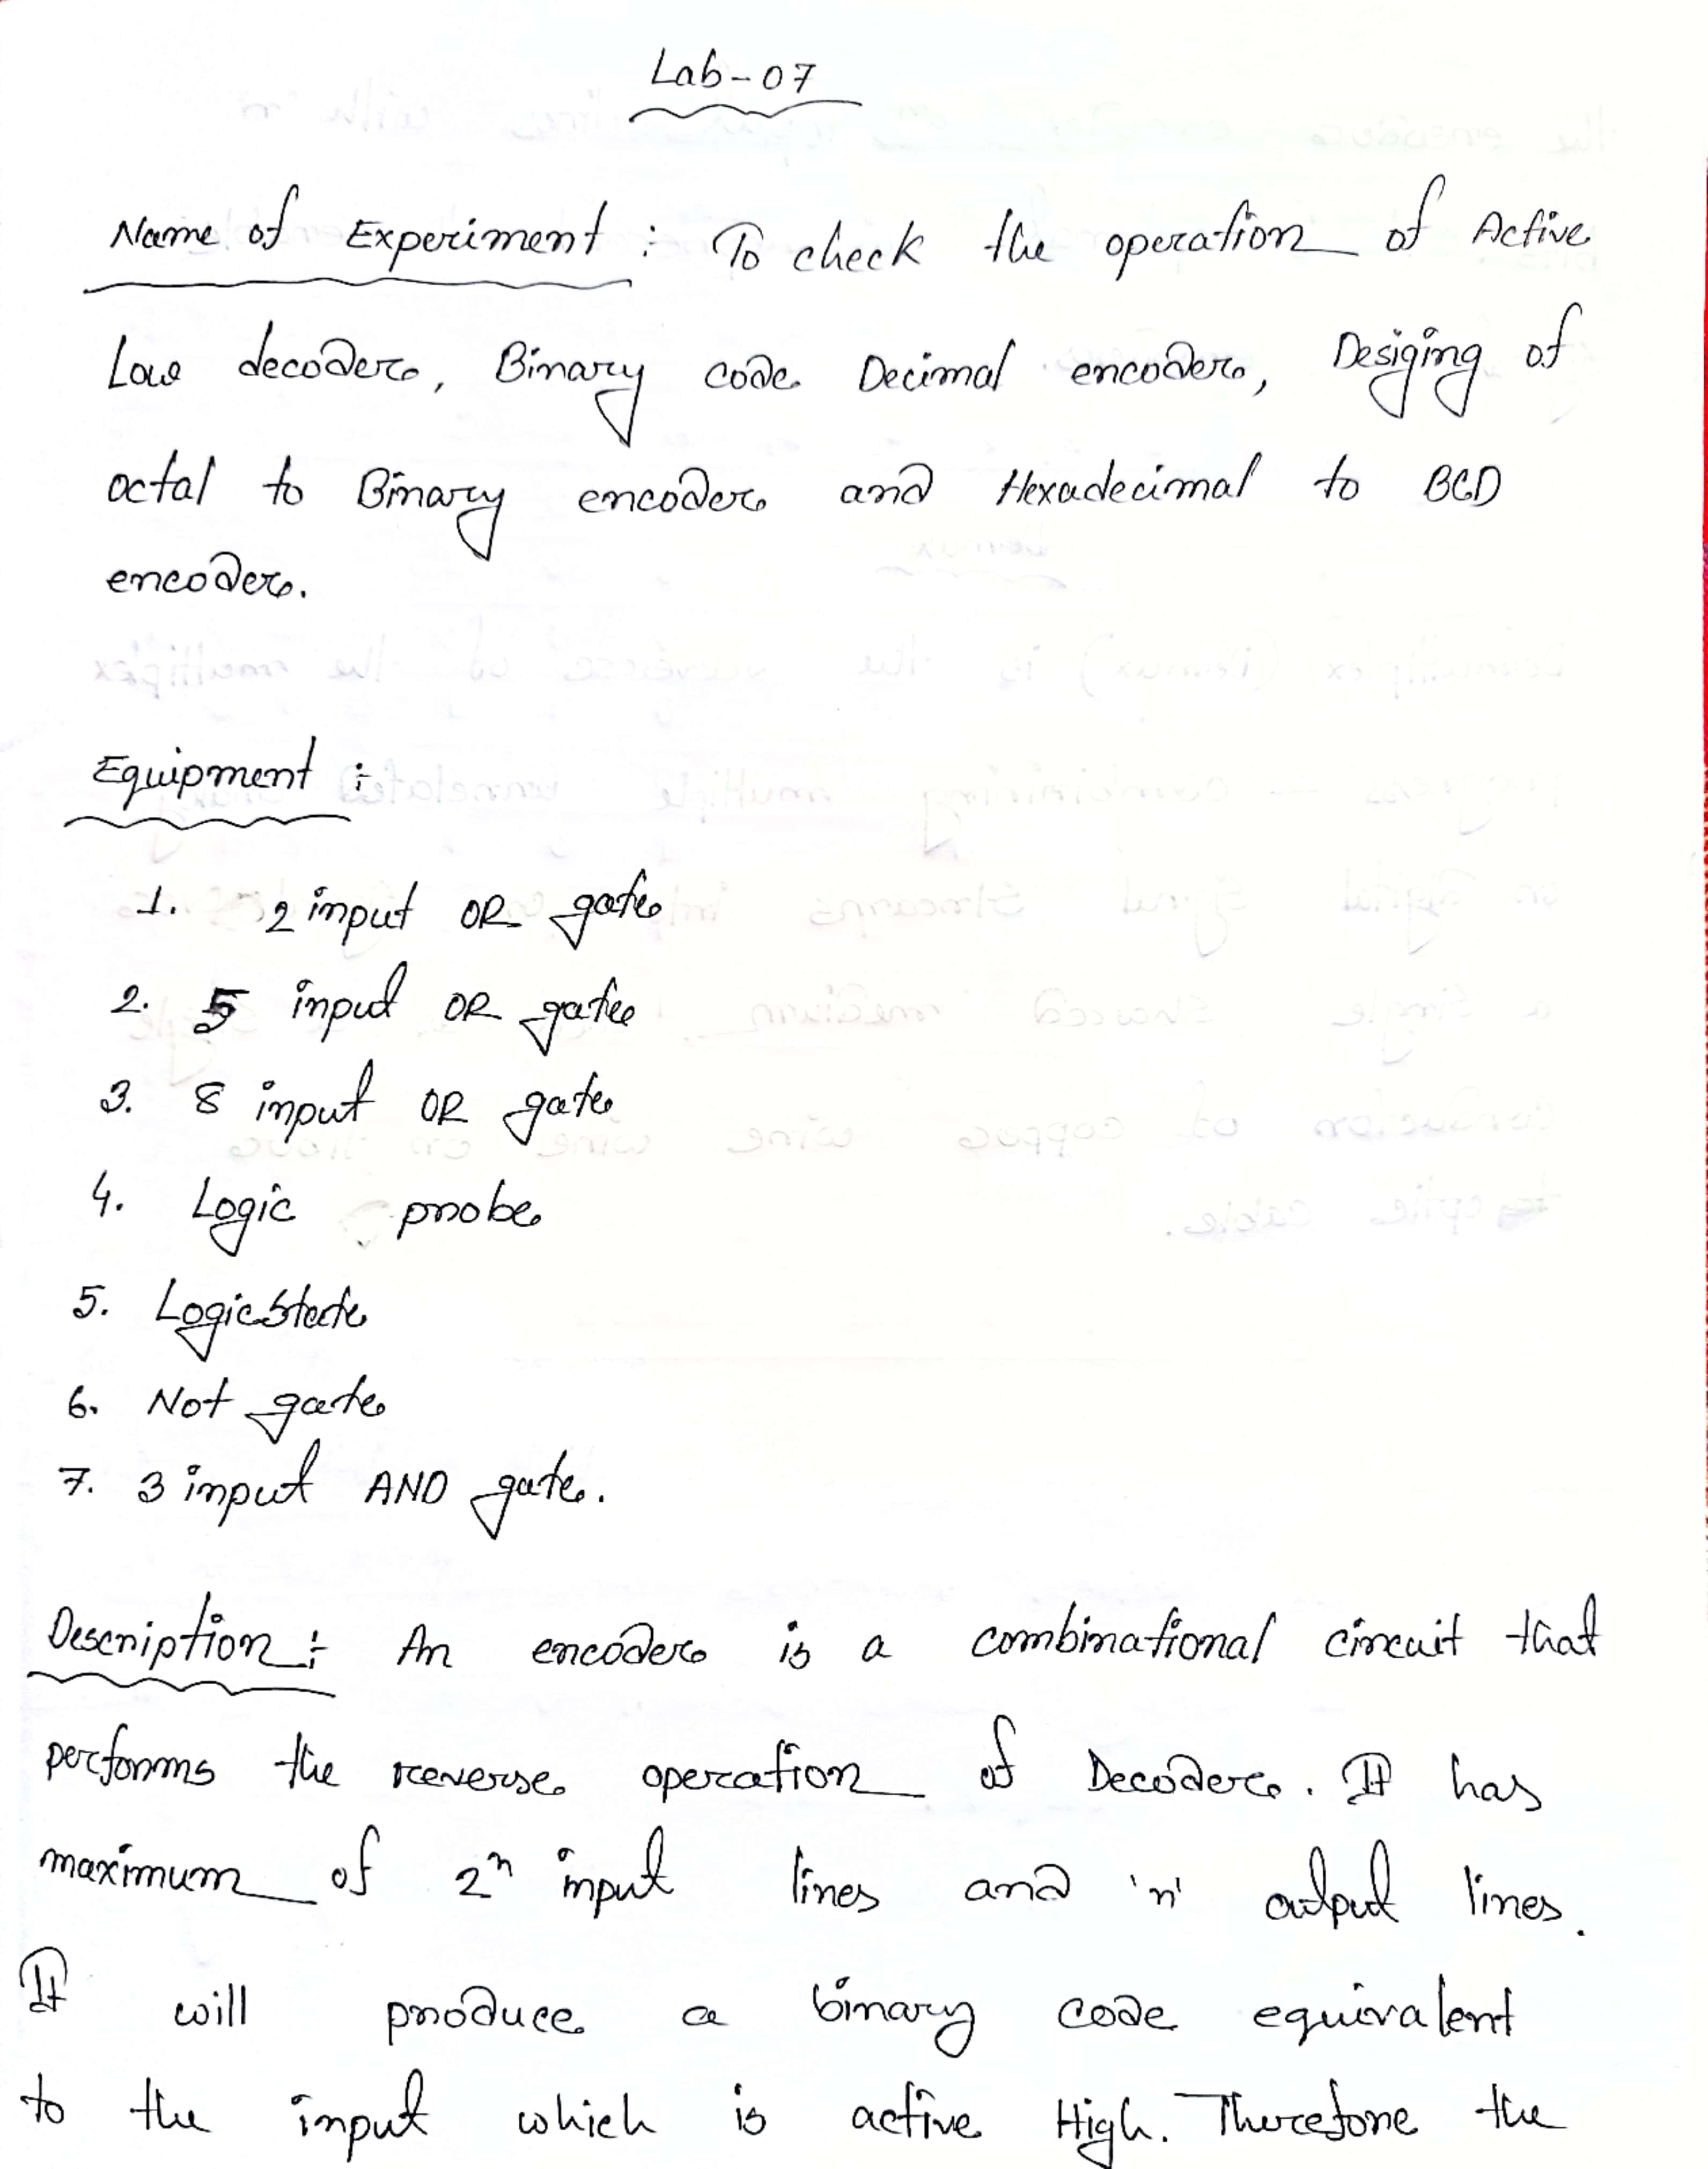 Lab-07
Name of Experiment : To check the operation of Active
Low decoder, Binary code Decimal encoder, Desiging of
octal to Binary encoder and Hexadecimal to BCD
encoder.
Equipment :
1. 2 input OR gate
2. 5 input OR gate
3. 8 input OR gate
4. Logic probe
5. Logicstate
6. Not gate
7. 3 input AND gate.
Description : An encoder is a combinational circuit that
performs the reverse operation of Decoder. It has
maximum of 2ⁿ input lines and 'n' output lines.
It will produce a binary code equivalent
to the input which is active High. Therefore the